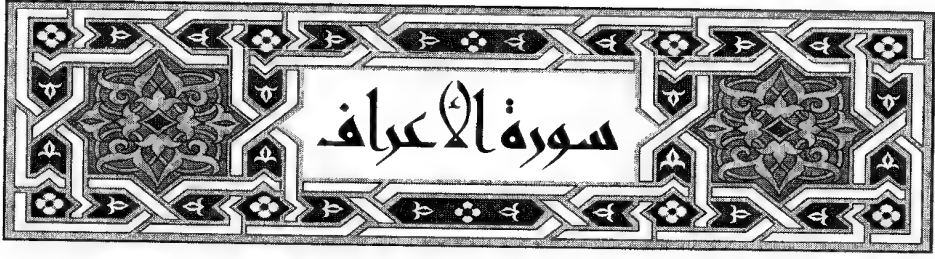 سورة الأعراف